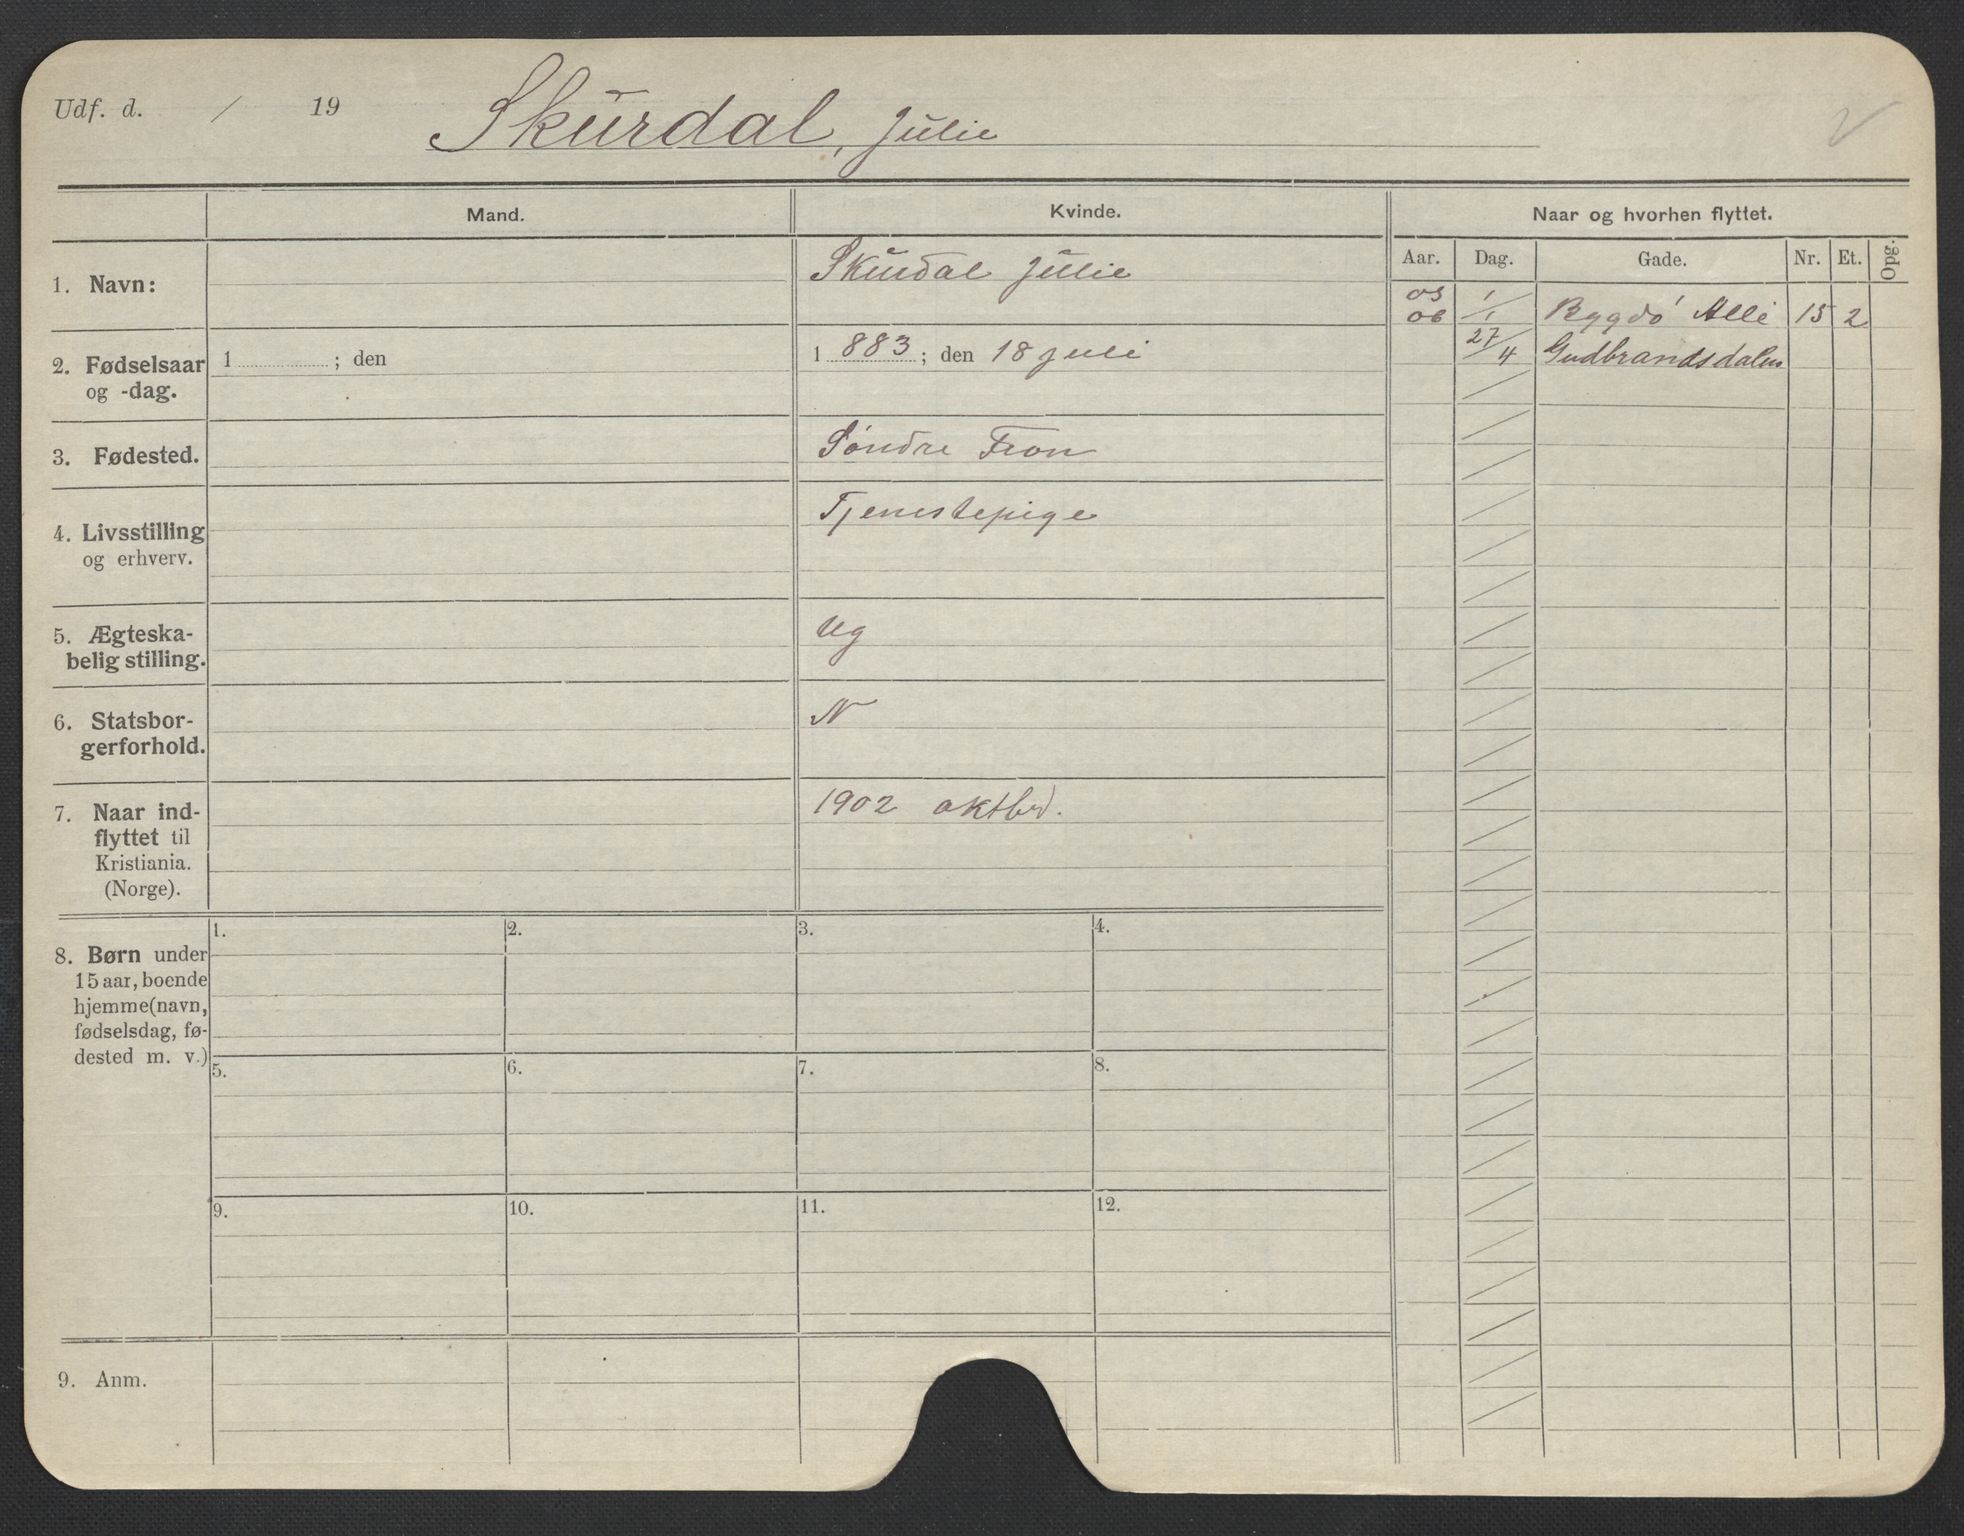 Udf. d. / 19 Skurdal, Julie
Mand. Kvinde. Naar og hvorhen flyttet.
Aar. Dag. Gade. Nr. Et. Opg.
1. Navn: Skurdal Julie
2. Fødselsaar og -dag.
1 ; den
1 883 ; den 18 juli
3. Fødested. Søndre Fron
4. Livsstilling og erhverv. Tjenestepige
5. Ægteska-
belig stilling. Ug
6. Statsbor-
gerforhold. N
7. Naar ind-
flyttet til
Kristiania.
(Norge).
1902 oktbr.
8. Børn under
15 aar, boende
hjemme (navn,
fødselsdag, fø-
dested m. v.)
1. 2. 3. 4.
5. 6. 7. 8.
9. 10. 11. 12.
9. Anm.
05
06 1/1 Bygdø Alle 15 2
27/4 Gudbrandsdalen